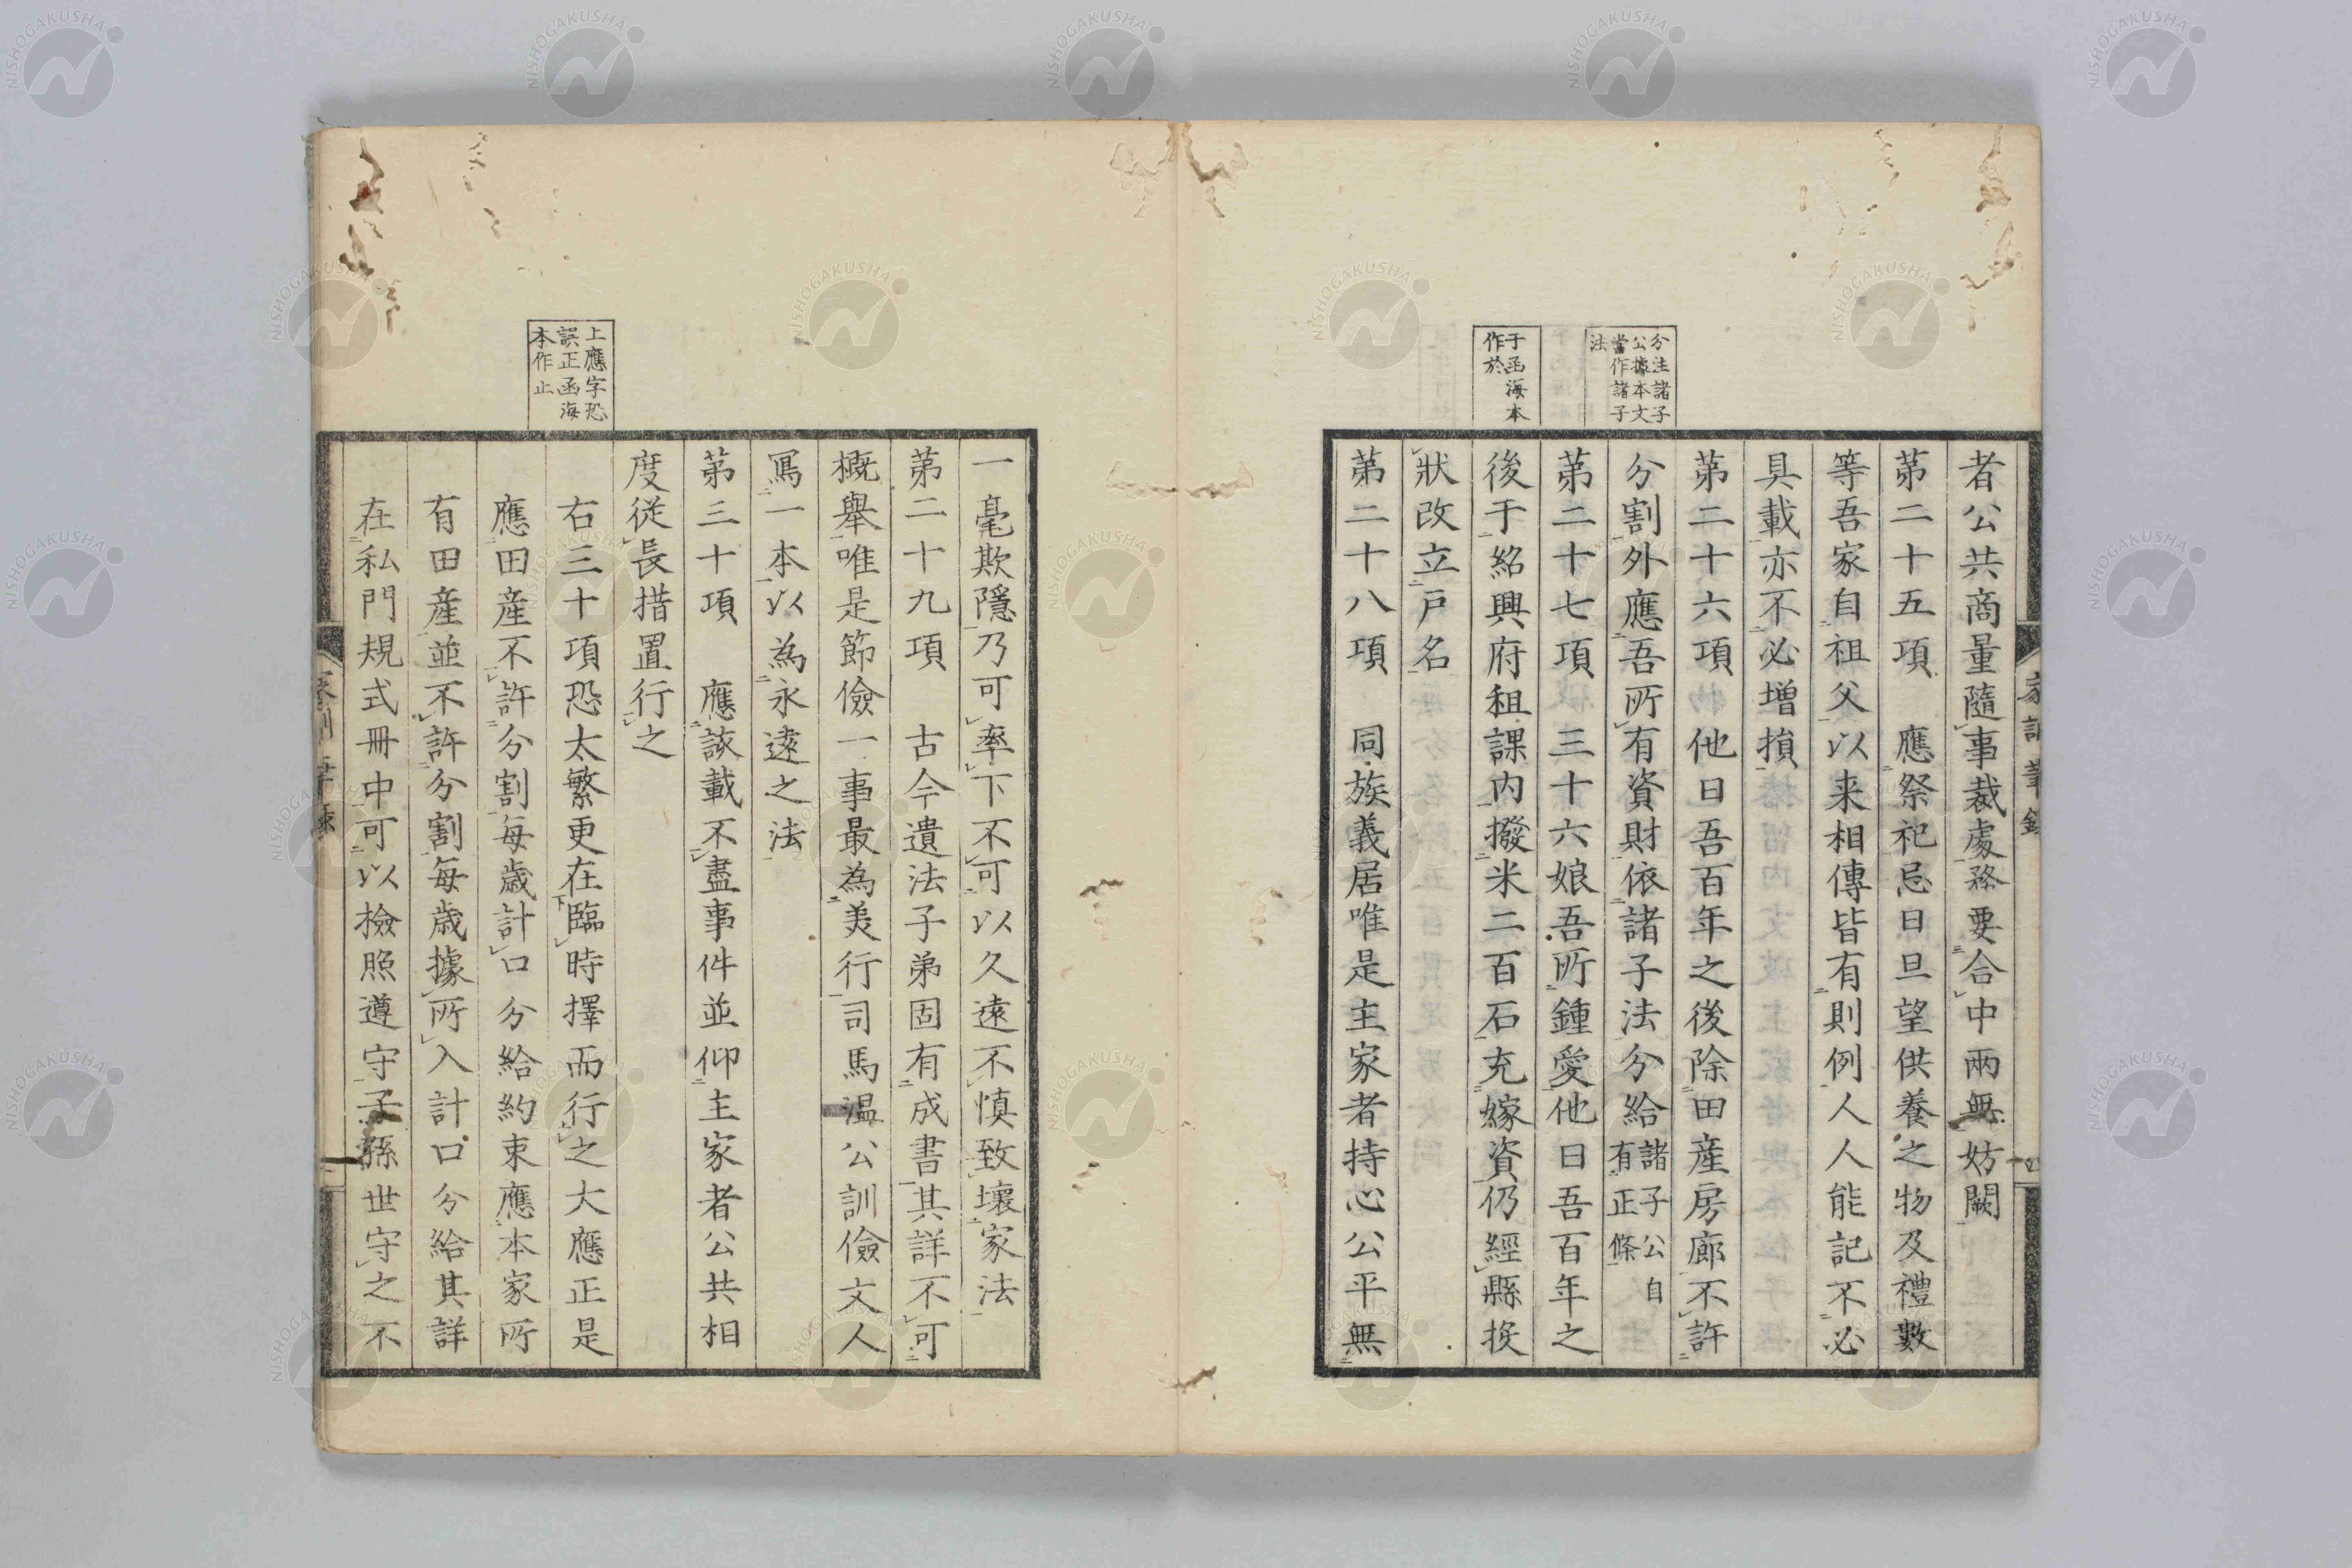 分注諸子
公據本文
當作諸子
法
于函海本
作於
者公共商量隨事裁處務要合中兩無妨闕
第二十五項　應祭祀忌日旦望供養之物及禮數
等吾家自祖父以来相傳皆有則例人人能記不必
具載亦不必增損
第二十六項　他日吾百年之後除田産房廊不許
分割外應吾所有資財依諸子法分給諸子公自有正條
第二十七項　三十六娘吾所鍾愛他日吾百年之
後于紹興府租課内撥米二百石充嫁資仍經縣投
狀改立戸名
第二十八項　同族義居唯是主家者持心公平無
上應字恐
誤正函海
本作止
一毫欺隱乃可率下不可以久遠不慎致壞家法
第二十九項　古今遺法子弟固有成書其詳不可
概舉唯是節儉一事最為美行司馬温公訓儉文人
寫一本以為永遠之法
第三十項　應該載不盡事件並仰主家者公共相
度從長措置行之
右三十項恐太繁更在臨時擇而行之大應正是
應田産不許分割每歳計口分給約束應本家所
有田産並不許分割每歳據所入計口分給其詳
在私門規式冊中可以檢照遵守子孫世守之不
家訓筆録
NISHOGAKUSHA